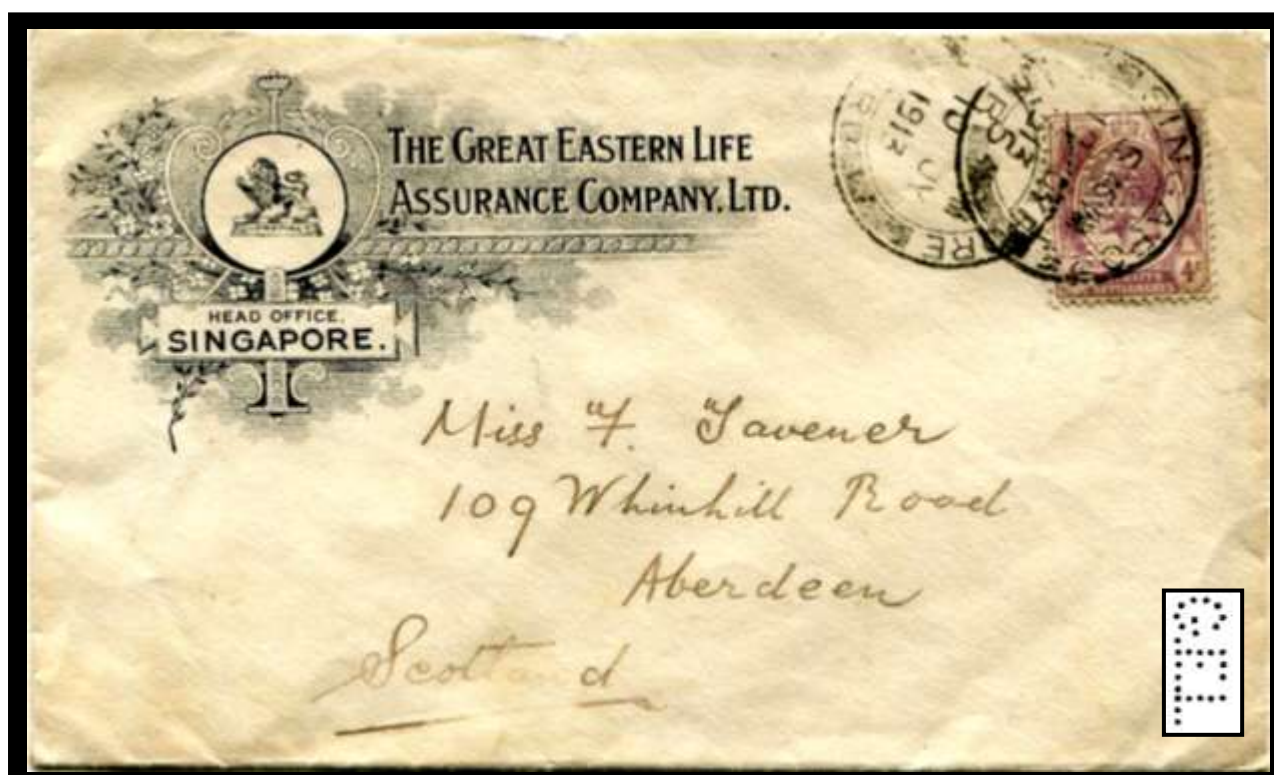 THE GREAT EASTERN LIFE
ASSURANCE COMPANY. LTD.
HEAD OFFICE.
SINGAPORE.
SINGAPO
1913
4c
Miss F. Tavener
109 Whinhill Road
Aberdeen
Scotland
GEL